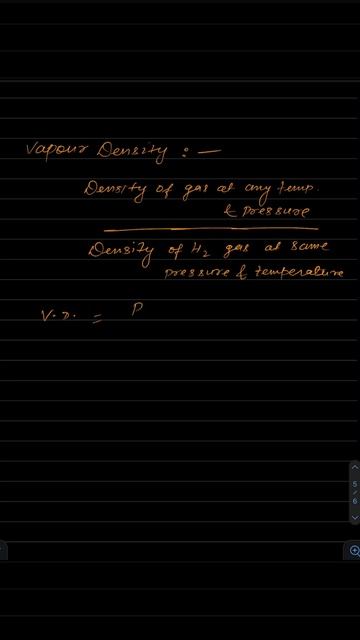 Vapour Density : —
Density of gas at any temp.
& pressure
Density of H2 gas at same
pressure & temperature
V.D. = P
5
/
6